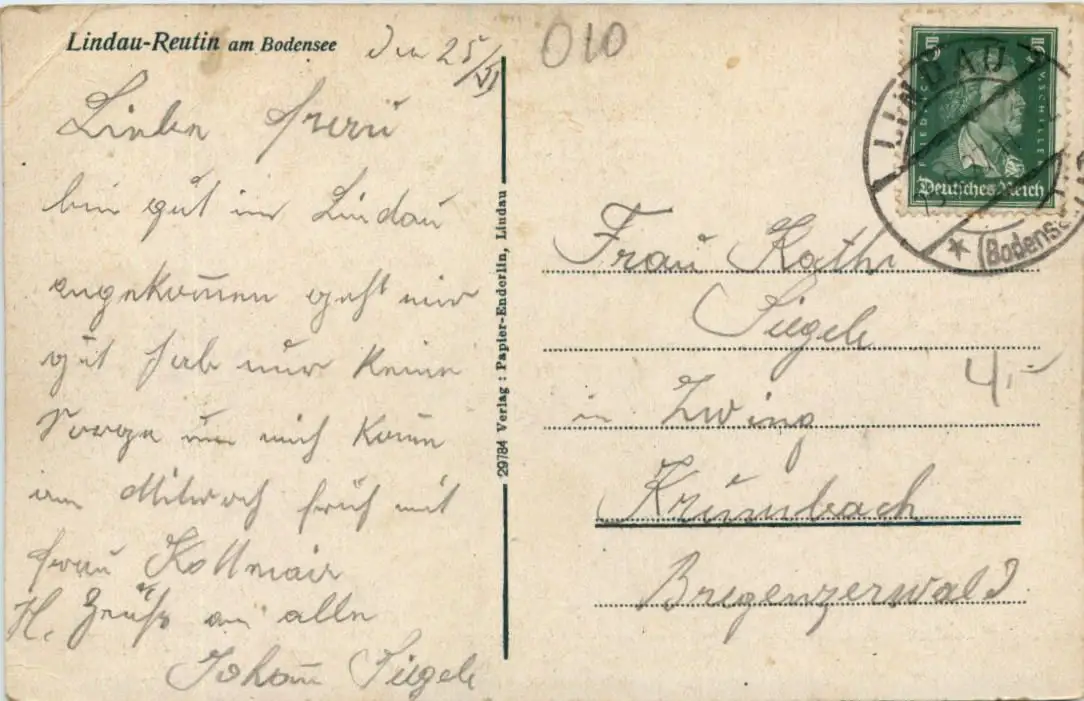 Lindau-Reutin am Bodensee
Den 25/VI
010
Lieben Frau
bin gut in Lindau
angekomen geht mir
gut hab nur keine
Sorge um mich kome
am Mitwoch früh mit
Frau Kollmair
H. Grüße an alle
Johan Siegele
29784 Verlag: Papier-Enderlin, Lindau
Deutsches Reich
LINDAU
(Bodensee)
Frau Kathi
Siegele
4,-
in Zwing
Krumbach
Bregenzerwald